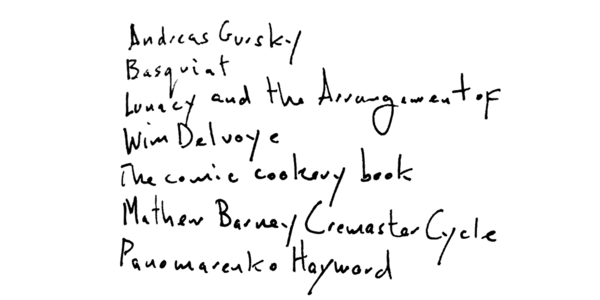 Andreas Gursky
Basquiat
Lunacy and the Arrangement of
Wim Delvoye
The comic cookery book
Mathew Barney Cremaster Cycle
Panomarenko Hayward